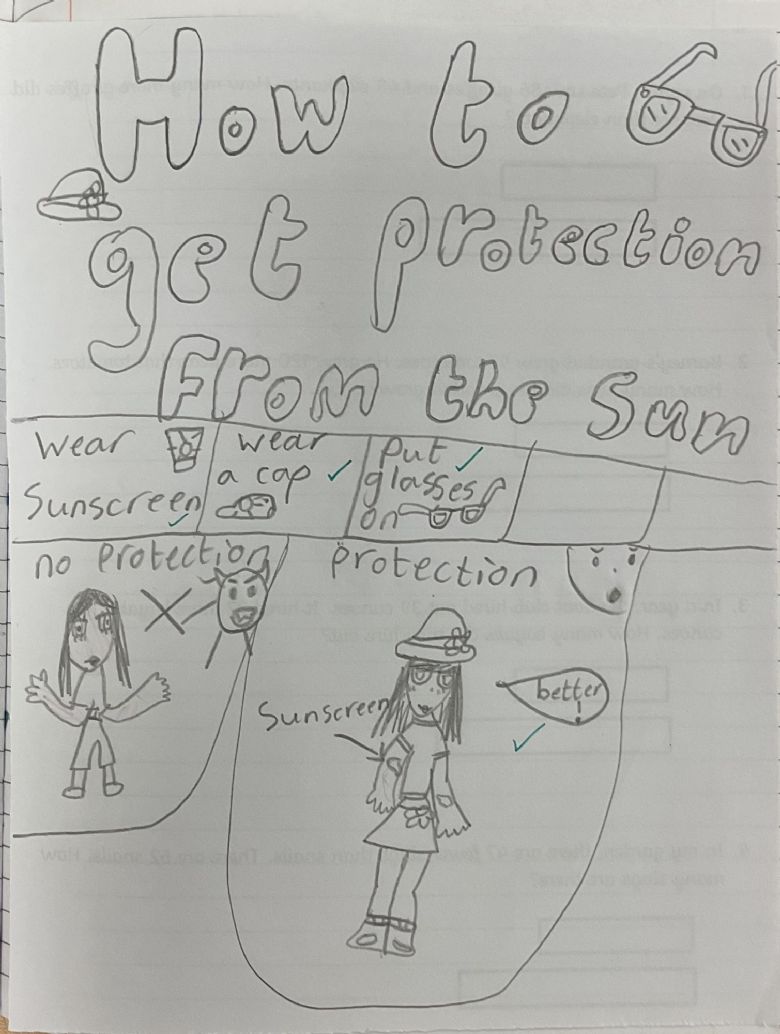 How to
get protection
From the Sun
Wear
Sunscreen
wear
a cap
Put
glasses
on
no protection
protection
Sunscreen
better!